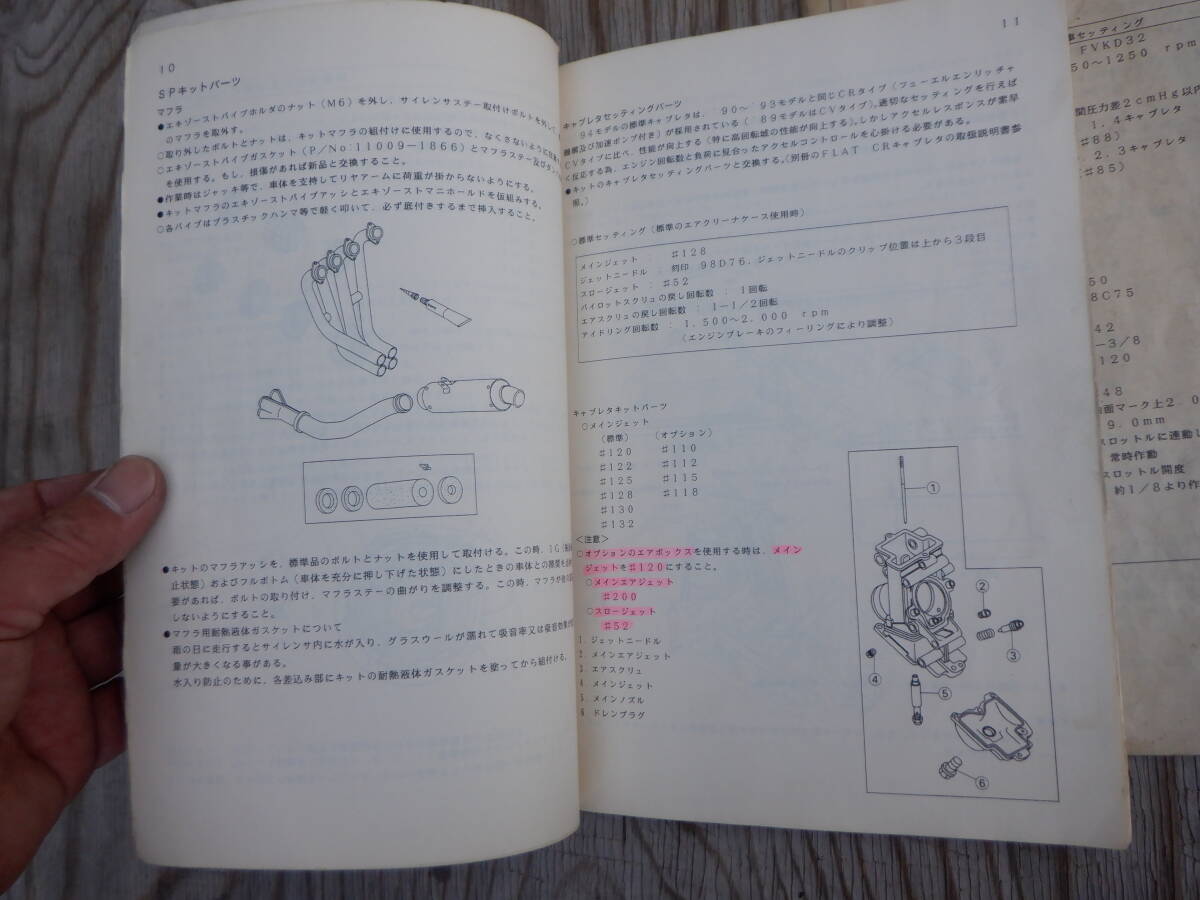 10
SPキットパーツ
マフラ
●エキゾーストパイプホルダのナット(M6)を外し、サイレンサステー取付けボルトを外して、
のマフラを取外す。
○取り外したボルトとナットは、キットマフラの組付けに使用するので、なくさないように
○エキゾーストパイプガスケット(P/No:11009-1866)とマフラステー及びダンパ
を使用する。もし、損傷があれば新品と交換すること。
●作業時はジャッキ等で、車体を支持してリヤアームに荷重が掛からないようにする。
●キットマフラのエキゾーストパイプアッシとエキゾーストマニホールドを仮組みする。
○各パイプはプラスチックハンマ等で軽く叩いて、必ず底付きするまで挿入すること。
●キットのマフラアッシを、標準品のボルトとナットを使用して取付ける。この時、1G(
止状態)およびフルボトム(車体を充分に押し下げた状態)にしたときの車体との隙間を
要があれば、ボルトの取り付け、マフラステーの曲がりを調整する。この時、マフラが
しないようにすること。
●マフラ用耐熱液体ガスケットについて
雨の日に走行するとサイレンサ内に水が入り、グラスウールが濡れて吸音率又は吸音効果が
量が大きくなる事がある。
水入り防止のために、各差込み部にキットの耐熱液体ガスケットを塗ってから組付ける。
11
キャブレタセッティングパーツ
'94モデルの標準キャブレタは、'90〜'93モデルと同じCRタイプ(フューエルエンリッチャ
機構及び加速ポンプ付き)が採用されている('89モデルはCVタイプ)。適切なセッティングを行えば
CVタイプに比べ、性能が向上する(特に高回転域の性能が向上する)。しかしアクセルレスポンスが素早
く反応する為、エンジン回転数と負荷に見合ったアクセルコントロールを心掛ける必要がある。
●キットのキャブレタセッティングパーツと交換する。(別冊のFLAT CRキャブレタの取扱説明書参
照。)
○標準セッティング(標準のエアクリーナケース使用時)
メインジェット : ♯128
ジェットニードル : 刻印 98D76、ジェットニードルのクリップ位置は上から3段目
スロージェット : ♯52
パイロットスクリュの戻し回転数 : 1回転
エアスクリュの戻し回転数 : 1-1/2回転
アイドリング回転数 : 1,500〜2,000 rpm
(エンジンブレーキのフィーリングにより調整)
キャブレタキットパーツ
○メインジェット
(標準) (オプション)
♯120 ♯110
♯122 ♯112
♯125 ♯115
♯128 ♯118
♯130
♯132
<注意>
○オプションのエアボックスを使用する時は、メイン
ジェットを♯120にすること。
○メインエアジェット
♯200
○スロージェット
♯52
1. ジェットニードル
2. メインエアジェット
3. エアスクリュ
4. メインジェット
5. メインノズル
6. ドレンプラグ
①
②
③
④
⑤
⑥
セッティング
FVKD32
50〜1250 rpm
間圧力差2cmHg以内
1,4キャブレタ
♯88)
2,3キャブレタ
(♯85)
50
8C75
42
-3/8
120
48
面マーク上2.0
9.0mm
スロットルに連動し
常時作動
スロットル開度
約1/8より作